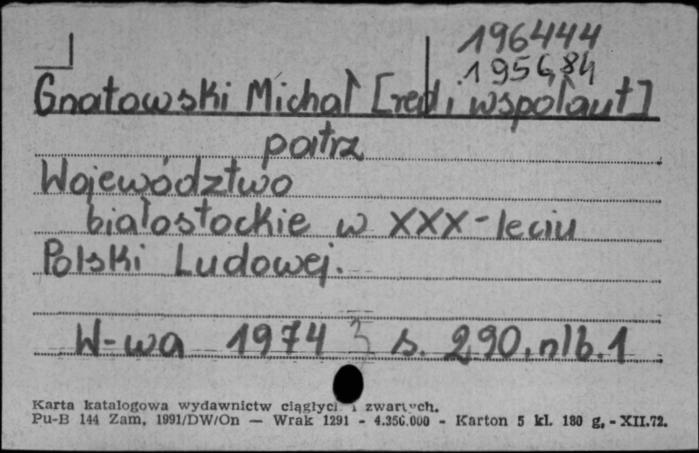 196444
195684
Gnatowski Michał [red i wspolaut]
patrz
Województwo
białostockie w XXX-leciu
Polski Ludowej.
W-wa 1974 s. 290, nlb. 1
Karta katalogowa wydawnictw ciągłych i zwartych.
Pu-B 144 Zam, 1991/DW/On — Wrak 1291 - 4.356.000 - Karton 5 kl. 180 g. - XII.72.